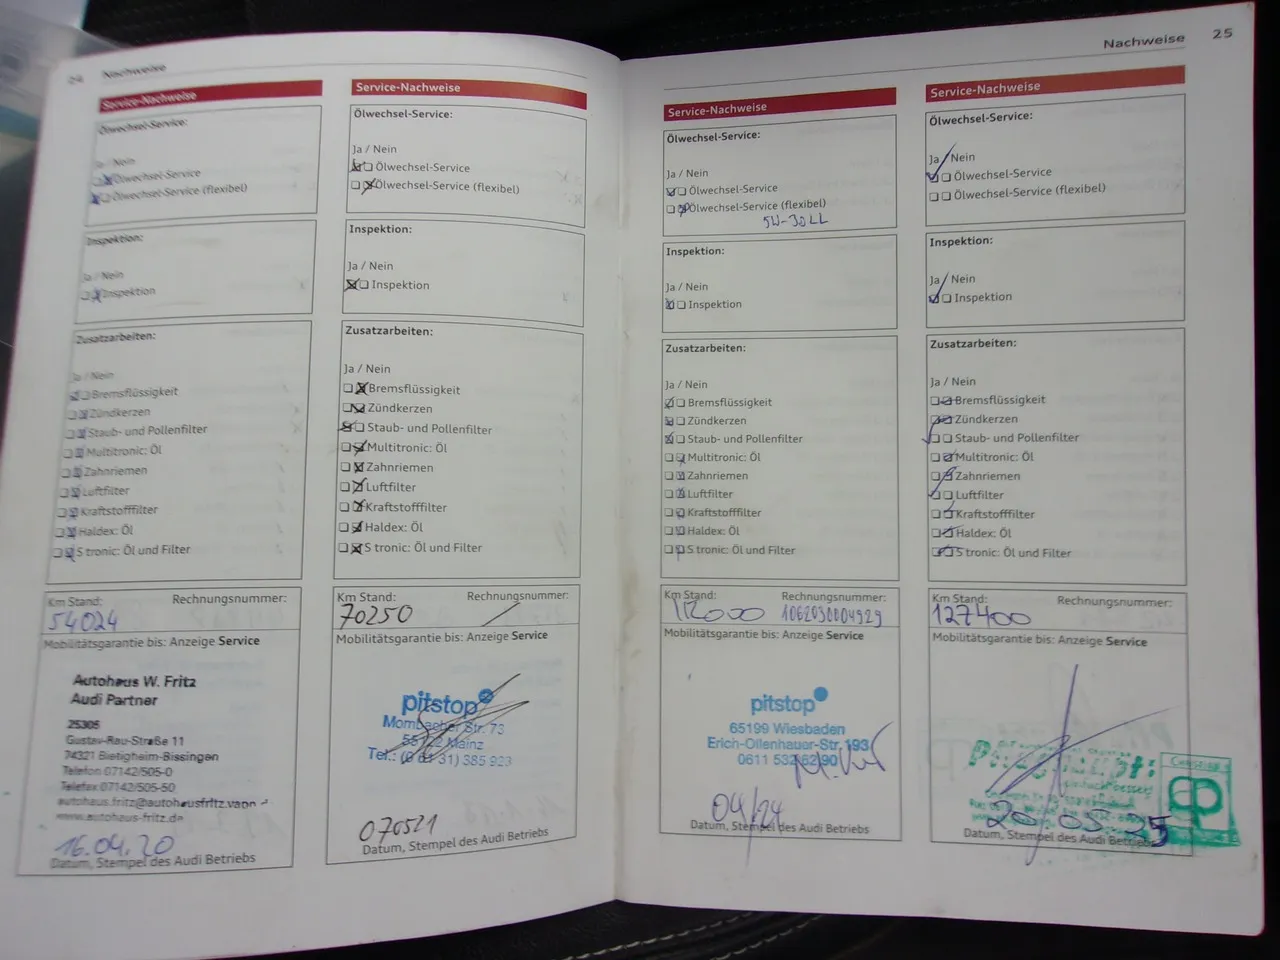 24 Nachweise
Service-Nachweise
Ölwechsel-Service:
Ja / Nein
Ölwechsel-Service
Ölwechsel-Service (flexibel)
Inspektion:
Ja / Nein
Inspektion
Zusatzarbeiten:
Ja / Nein
Bremsflüssigkeit
Zündkerzen
Staub- und Pollenfilter
Multitronic: Öl
Zahnriemen
Luftfilter
Kraftstofffilter
Haldex: Öl
S tronic: Öl und Filter
Km Stand: Rechnungsnummer:
54024
Mobilitätsgarantie bis: Anzeige Service
Autohaus W. Fritz
Audi Partner
25305
Gustav-Rau-Straße 11
74321 Bietigheim-Bissingen
Telefon 07142/505-0
Telefax 07142/505-50
autohaus.fritz@autohausfritz.vapn
www.autohaus-fritz.de
16.04.20
Datum, Stempel des Audi Betriebs
Service-Nachweise
Ölwechsel-Service:
Ja / Nein
Ölwechsel-Service
Ölwechsel-Service (flexibel)
Inspektion:
Ja / Nein
Inspektion
Zusatzarbeiten:
Ja / Nein
Bremsflüssigkeit
Zündkerzen
Staub- und Pollenfilter
Multitronic: Öl
Zahnriemen
Luftfilter
Kraftstofffilter
Haldex: Öl
S tronic: Öl und Filter
Km Stand: Rechnungsnummer:
70250
Mobilitätsgarantie bis: Anzeige Service
pitstop
Mombacher Str. 73
Mainz
Tel.: (0 61 31) 385 923
070521
Datum, Stempel des Audi Betriebs
Nachweise 25
Service-Nachweise
Ölwechsel-Service:
Ja / Nein
Ölwechsel-Service
Ölwechsel-Service (flexibel)
5W-30 LL
Inspektion:
Ja / Nein
Inspektion
Zusatzarbeiten:
Ja / Nein
Bremsflüssigkeit
Zündkerzen
Staub- und Pollenfilter
Multitronic: Öl
Zahnriemen
Luftfilter
Kraftstofffilter
Haldex: Öl
S tronic: Öl und Filter
Km Stand: Rechnungsnummer:
112000 1062030004929
Mobilitätsgarantie bis: Anzeige Service
pitstop
65199 Wiesbaden
Erich-Ollenhauer-Str. 193
0611 532 62 90
04/24
Datum, Stempel des Audi Betriebs
Service-Nachweise
Ölwechsel-Service:
Ja / Nein
Ölwechsel-Service
Ölwechsel-Service (flexibel)
Inspektion:
Ja / Nein
Inspektion
Zusatzarbeiten:
Ja / Nein
Bremsflüssigkeit
Zündkerzen
Staub- und Pollenfilter
Multitronic: Öl
Zahnriemen
Luftfilter
Kraftstofffilter
Haldex: Öl
S tronic: Öl und Filter
Km Stand: Rechnungsnummer:
127400
Mobilitätsgarantie bis: Anzeige Service
20.05.25
Datum, Stempel des Audi Betriebs